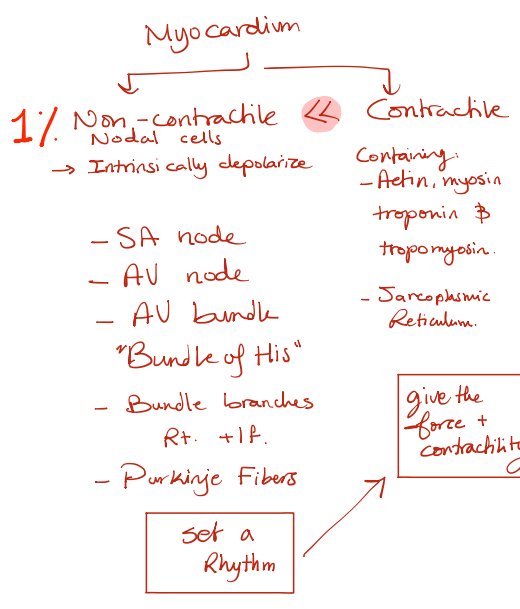 Myocardium
1% Non-contractile << Contractile
Nodal cells
→ Intrinsically depolarize
- SA node
- AV node
- AV bundle
"Bundle of His"
- Bundle branches
Rt. + lf.
- Purkinje Fibers
set a
Rhythm
Containing:
- Actin, myosin
troponin &
tropomyosin.
- Sarcoplasmic
Reticulum.
give the
force +
contractility